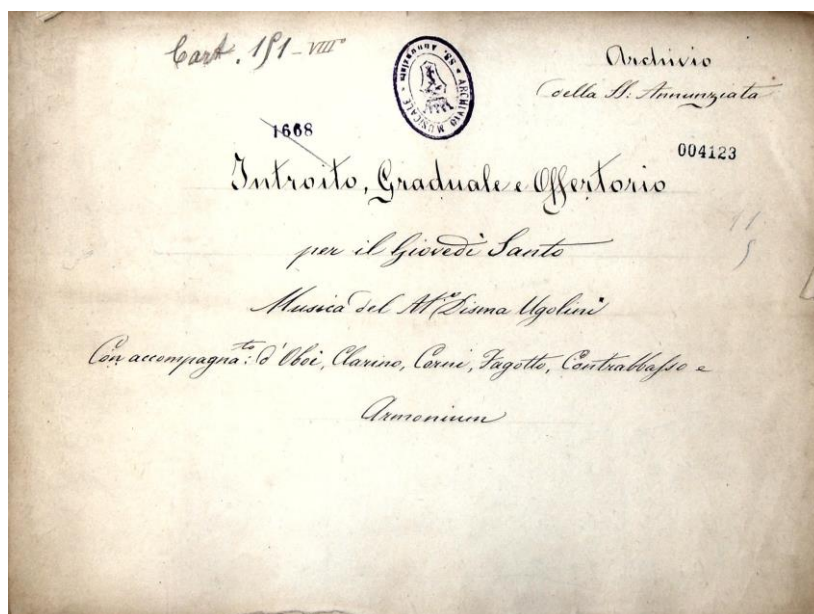 Cart. 151 - VIII°
Archivio
della SS: Annunziata
ARCHIVIO MUSICALE * SS. Annunziata *
1668
004123
Introito, Graduale e Offertorio
per il Giovedì Santo
Musica del M.ro Disma Ugolini
Con accompagna.to: d'Oboi, Clarino, Corni, Fagotto, Contrabbasso e
Armonium